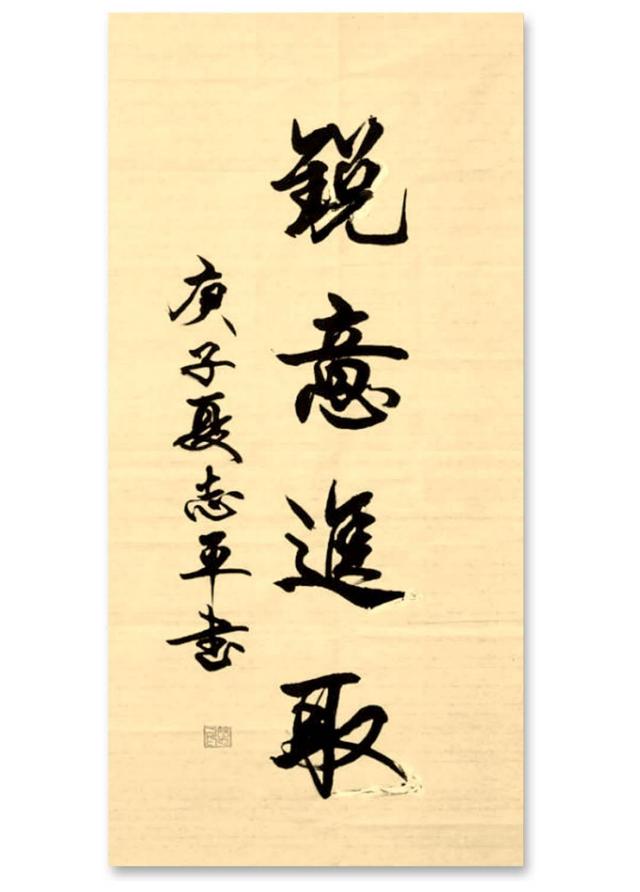 銳意進取
庚子夏志平书